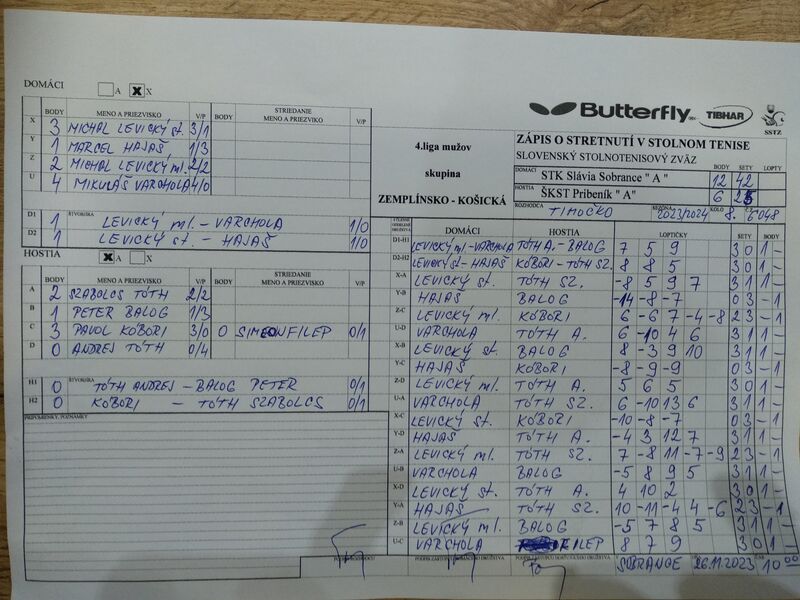 DOMÁCI A X X
BODY MENO A PRIEZVISKO V/P STRIEDANIE MENO A PRIEZVIKO V/P
X 3 MICHAL LEVICKÝ st. 3/1
Y 1 MARCEL HAJAŠ 1/3
Z 2 MICHAL LEVICKÝ ml. 2/2
U 4 MIKULÁŠ VARCHOLA 4/0
D1 1 ŠTVORHRA LEVICKÝ ml. - VARCHOLA 1/0
D2 1 LEVICKÝ st. - HAJAŠ 1/0
HOSTIA X A X
BODY MENO A PRIEZVISKO V/P STRIEDANIE MENO A PRIEZVISKO V/P
A 2 SZABOLCS TÓTH 2/2
B 1 PETER BALOG 1/3
C 3 PAVOL KÓBORI 3/0 0 SIMEON FILEP 0/1
D 0 ANDREJ TÓTH 0/4
H1 0 ŠTVORHRA TÓTH ANDREJ - BALOG PETER 0/1
H2 0 KÓBORI - TÓTH SZABOLCS 0/1
PRIPOMIENKY, POZNÁMKY
Butterfly TIBHAR SSTZ
4.liga mužov
skupina
ZEMPLÍNSKO - KOŠICKÁ
ZÁPIS O STRETNUTÍ V STOLNOM TENISE
SLOVENSKÝ STOLNOTENISOVÝ ZVÄZ
BODY SETY LOPTY
DOMÁCI STK Slávia Sobrance "A" 12 42
HOSTIA ŠKST Pribeník "A" 6 25
ROZHODCA TIMOČKO SEZÓNA 2023/2024 KOLO 8. 6048
DOMÁCI HOSTIA LOPTIČKY SETY BODY
D1-H1 LEVICKÝ ml - VARCHOLA TÓTH A. - BALOG 7 5 9 3 0 1 -
D2-H2 LEVICKÝ st - HAJAŠ KÓBORI - TÓTH SZ. 8 8 5 3 0 1 -
X-A LEVICKÝ st. TÓTH SZ. -8 5 9 7 3 1 1 -
Y-B HAJAŠ BALOG -14 -8 -7 0 3 - 1
Z-C LEVICKÝ ml. KÓBORI 6 -6 7 -4 -8 2 3 - 1
U-D VARCHOLA TÓTH A. 6 -10 4 6 3 1 1 -
X-B LEVICKÝ st. BALOG 8 -3 9 10 3 1 1 -
Y-C HAJAŠ KÓBORI -8 -9 -9 0 3 - 1
Z-D LEVICKÝ ml. TÓTH A. 5 6 5 3 0 1 -
U-A VARCHOLA TÓTH SZ. 6 -10 13 6 3 1 1 -
X-C LEVICKÝ st. KÓBORI -10 -8 -7 0 3 - 1
Y-D HAJAŠ TÓTH A. -4 3 12 7 3 1 1 -
Z-A LEVICKÝ ml. TÓTH SZ. 7 -8 11 -7 -9 2 3 - 1
U-B VARCHOLA BALOG -5 8 9 5 3 1 1 -
X-D LEVICKÝ st. TÓTH A. 4 10 2 3 0 1 -
Y-A HAJAŠ TÓTH SZ. 10 -11 -4 4 -6 2 3 - 1
Z-B LEVICKÝ ml. BALOG -5 7 8 5 3 1 1 -
U-C VARCHOLA FILEP 8 7 9 3 0 1 -
SOBRANCE 26.11.2023 10 00